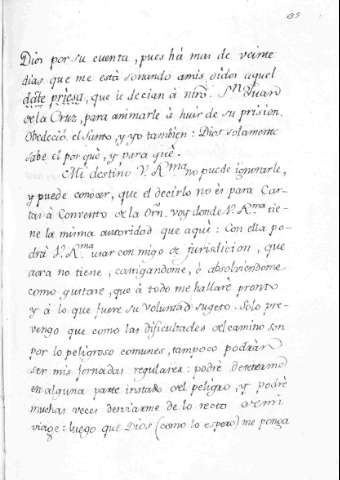 Dios por su cuenta, pues há mas de veinte
dias que me está sonando amis oídos aquel
date priesa, que le decian à nrõ. Sn. Juan
de la Cruz, para animarle à huir de su prision.
Obedeció el Santo, y yo tambien: Dios solamente
sabe el por què, y para què.
Mi destino V. Rma. no puede ignorarle,
y puede conocer, que el decirlo no es para Car-
ta: à Convento de la Orn. voy donde V. Rma tie-
ne la misma autoridad que aquì: Con ella po-
drà V. Rma usar con migo de jurisdicion, que
aora no tiene, castigandome, ò absolviendome
como gustare, que à todo me hallarè pronto
y à lo que fuere su voluntad sugeto. Solo pre-
vengo que como las dificultades del camino son
por lo peligroso comunes, tampoco podràn
ser mis jornadas regulares: podrè detenerme
en alguna parte instado del peligro, y podrè
muchas veces desviarme de lo recto de mi
viage: luego que Dios (como lo espero) me ponga